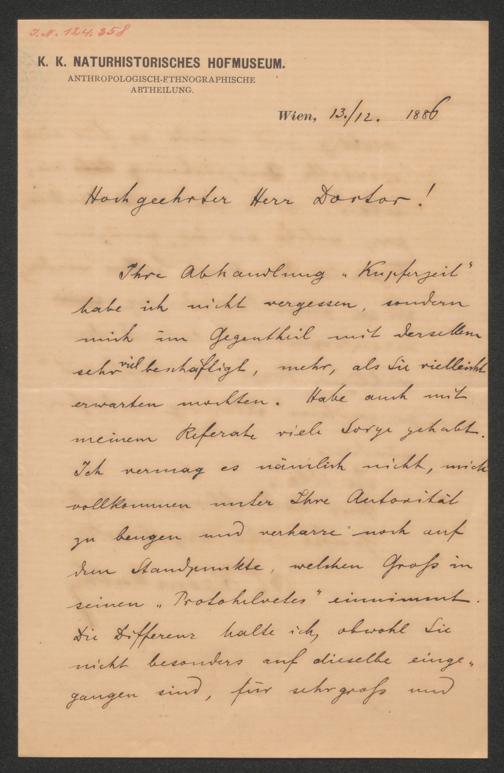 J.N. 124.358
K. K. NATURHISTORISCHES HOFMUSEUM.
ANTHROPOLOGISCH-ETHNOGRAPHISCHE
ABTHEILUNG.
Wien, 13./12. 1886
Hochgeehrter Herr Doctor!
Ihre Abhandlung „Kupferzeit"
habe ich nicht vergessen, sondern
mich im Gegentheil mit derselben
sehr viel beschäftigt, mehr, als Sie vielleicht
erwarten mochten. Habe auch mit
meinem Referate viele Sorge gehabt.
Ich vermag es nämlich nicht, mich
vollkommen unter Ihre Autorität
zu beugen und verharre noch auf
dem Standpunkte, welchen Groß in
seinen „Protohelvetes" einnimmt.
Die Differenz halte ich, obwohl Sie
nicht besonders auf dieselbe einge-
gangen sind, für sehr groß und